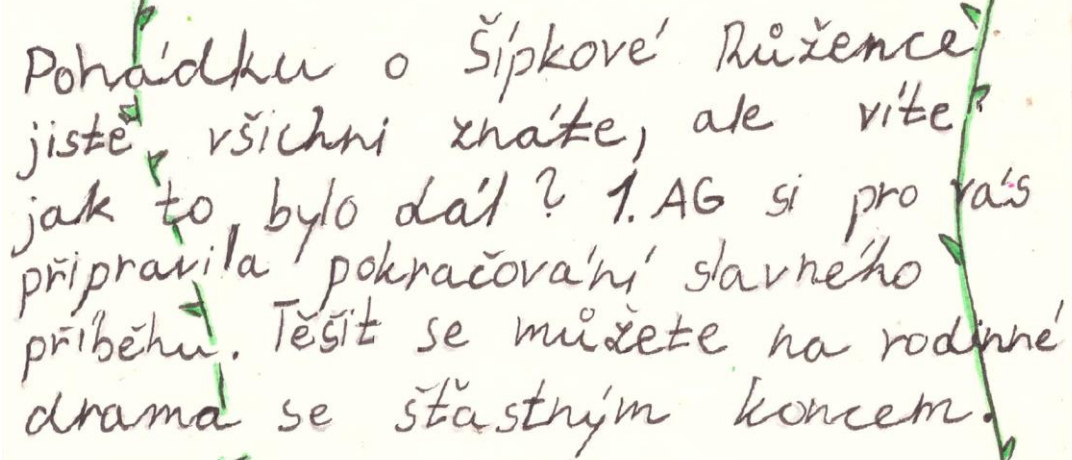 Pohádku o Šípkové Růžence
jistě všichni znáte, ale víte
jak to bylo dál? 1. AG si pro vás
připravila pokračování slavného
příběhu. Těšit se můžete na rodinné
drama se šťastným koncem.